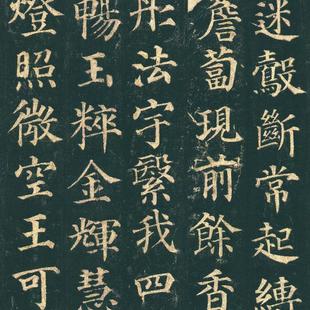 迷鷇斷常起縛
薝蔔現前餘香
彤法宇繫我四
暢玉粹金輝慧
燈照微空王可